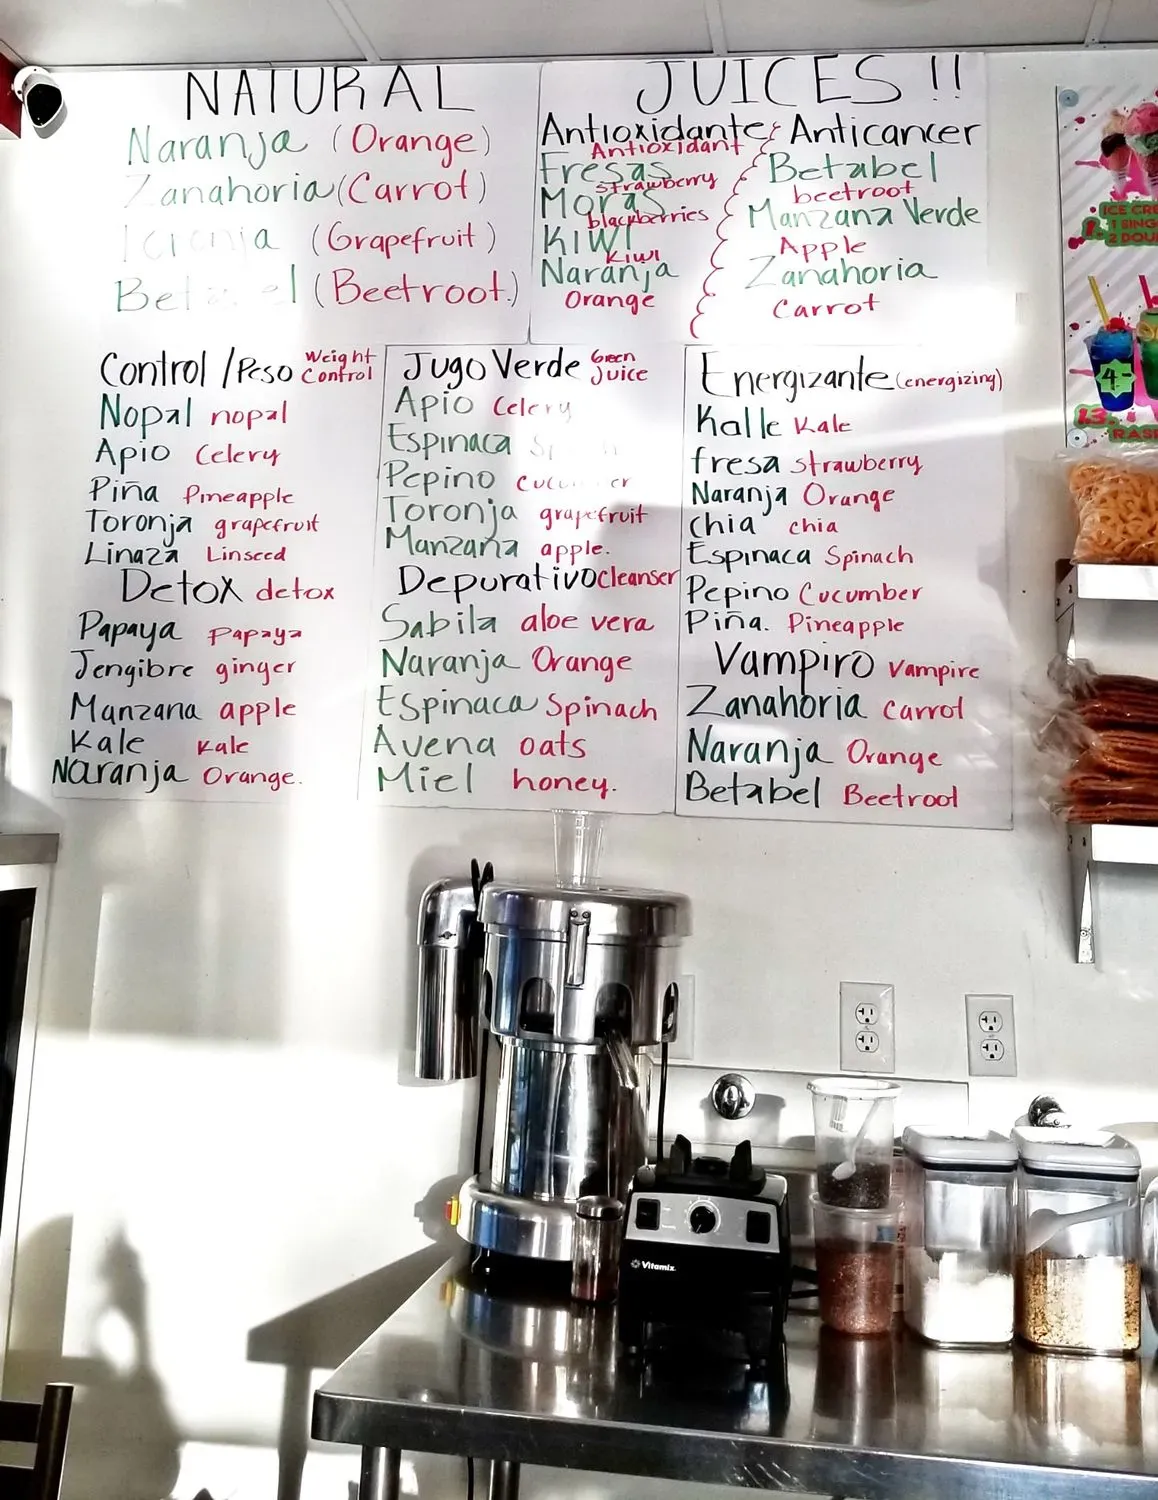 NATURAL JUICES !!
Naranja (Orange)
Zanahoria (Carrot)
(Grapefruit)
(Beetroot.)
Antioxidante
Antioxidant
Fresas
strawberry
Moras
blackberries
KIWI
KIWI
Naranja
Orange
Anticancer
Betabel
beetroot
Manzana Verde
Apple
Zanahoria
Carrot
Control/Peso Weight Control
Nopal nopal
Apio Celery
Piña Pineapple
Toronja grapefruit
Linaza Linseed
Detox detox
Papaya Papaya
Jengibre ginger
Manzana apple
Kale Kale
Naranja Orange.
Jugo Verde Green Juice
Apio Celery
Espinaca
Pepino
Toronja grapefruit
Manzana apple.
Depurativo Cleanser
Sabila aloe vera
Naranja Orange
Espinaca Spinach
Avena oats
Miel honey.
Energizante (energizing)
Kalle Kale
fresa strawberry
Naranja Orange
chia chia
Espinaca Spinach
Pepino Cucumber
Piña. Pineapple
Vampiro Vampire
Zanahoria Carrot
Naranja Orange
Betabel Beetroot
4-
Vitamix